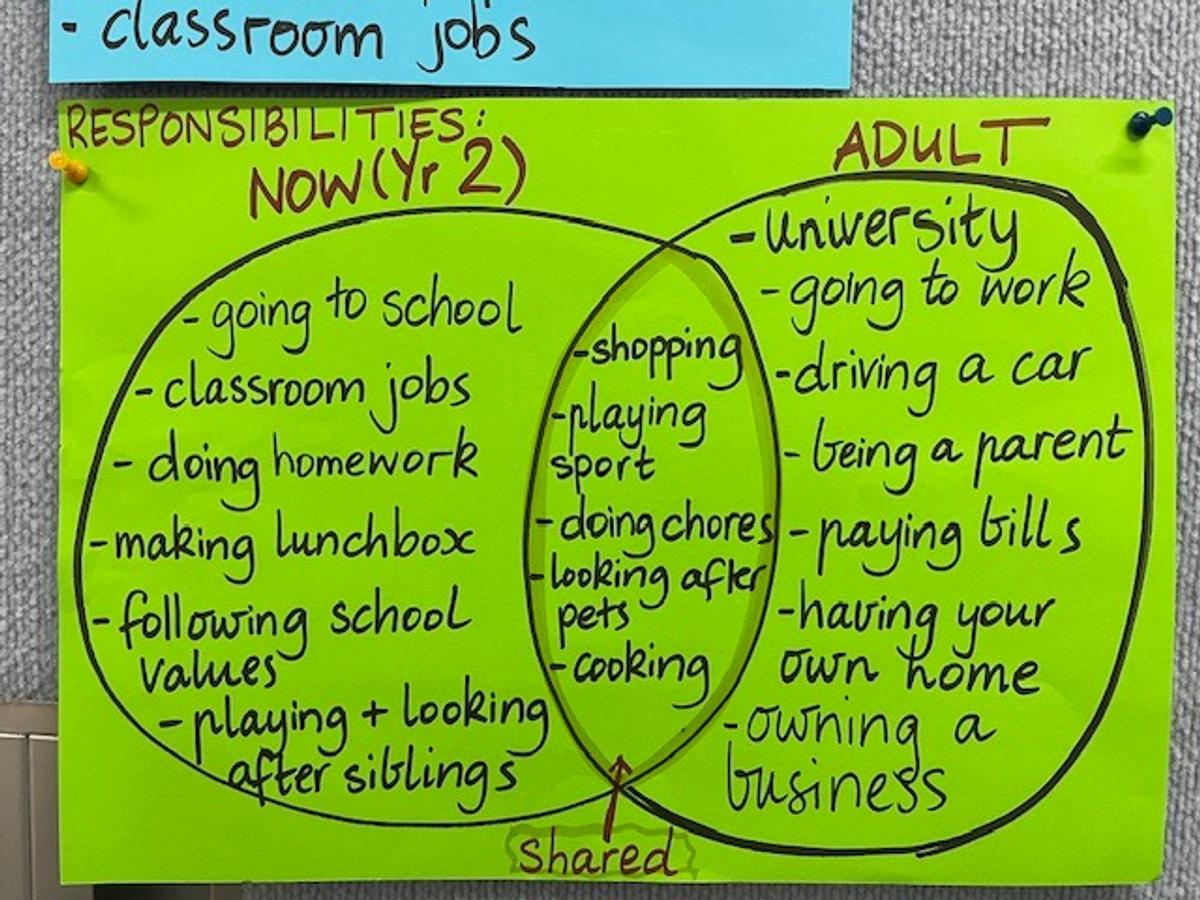 - classroom jobs
RESPONSIBILITIES:
NOW (Yr 2)
- going to school
- classroom jobs
- doing homework
- making lunchbox
- following school
values
- playing + looking
after siblings
- shopping
- playing
sport
- doing chores
- looking after
pets
- cooking
Shared
ADULT
- university
- going to work
- driving a car
- being a parent
- paying bills
- having your
own home
- owning a
business